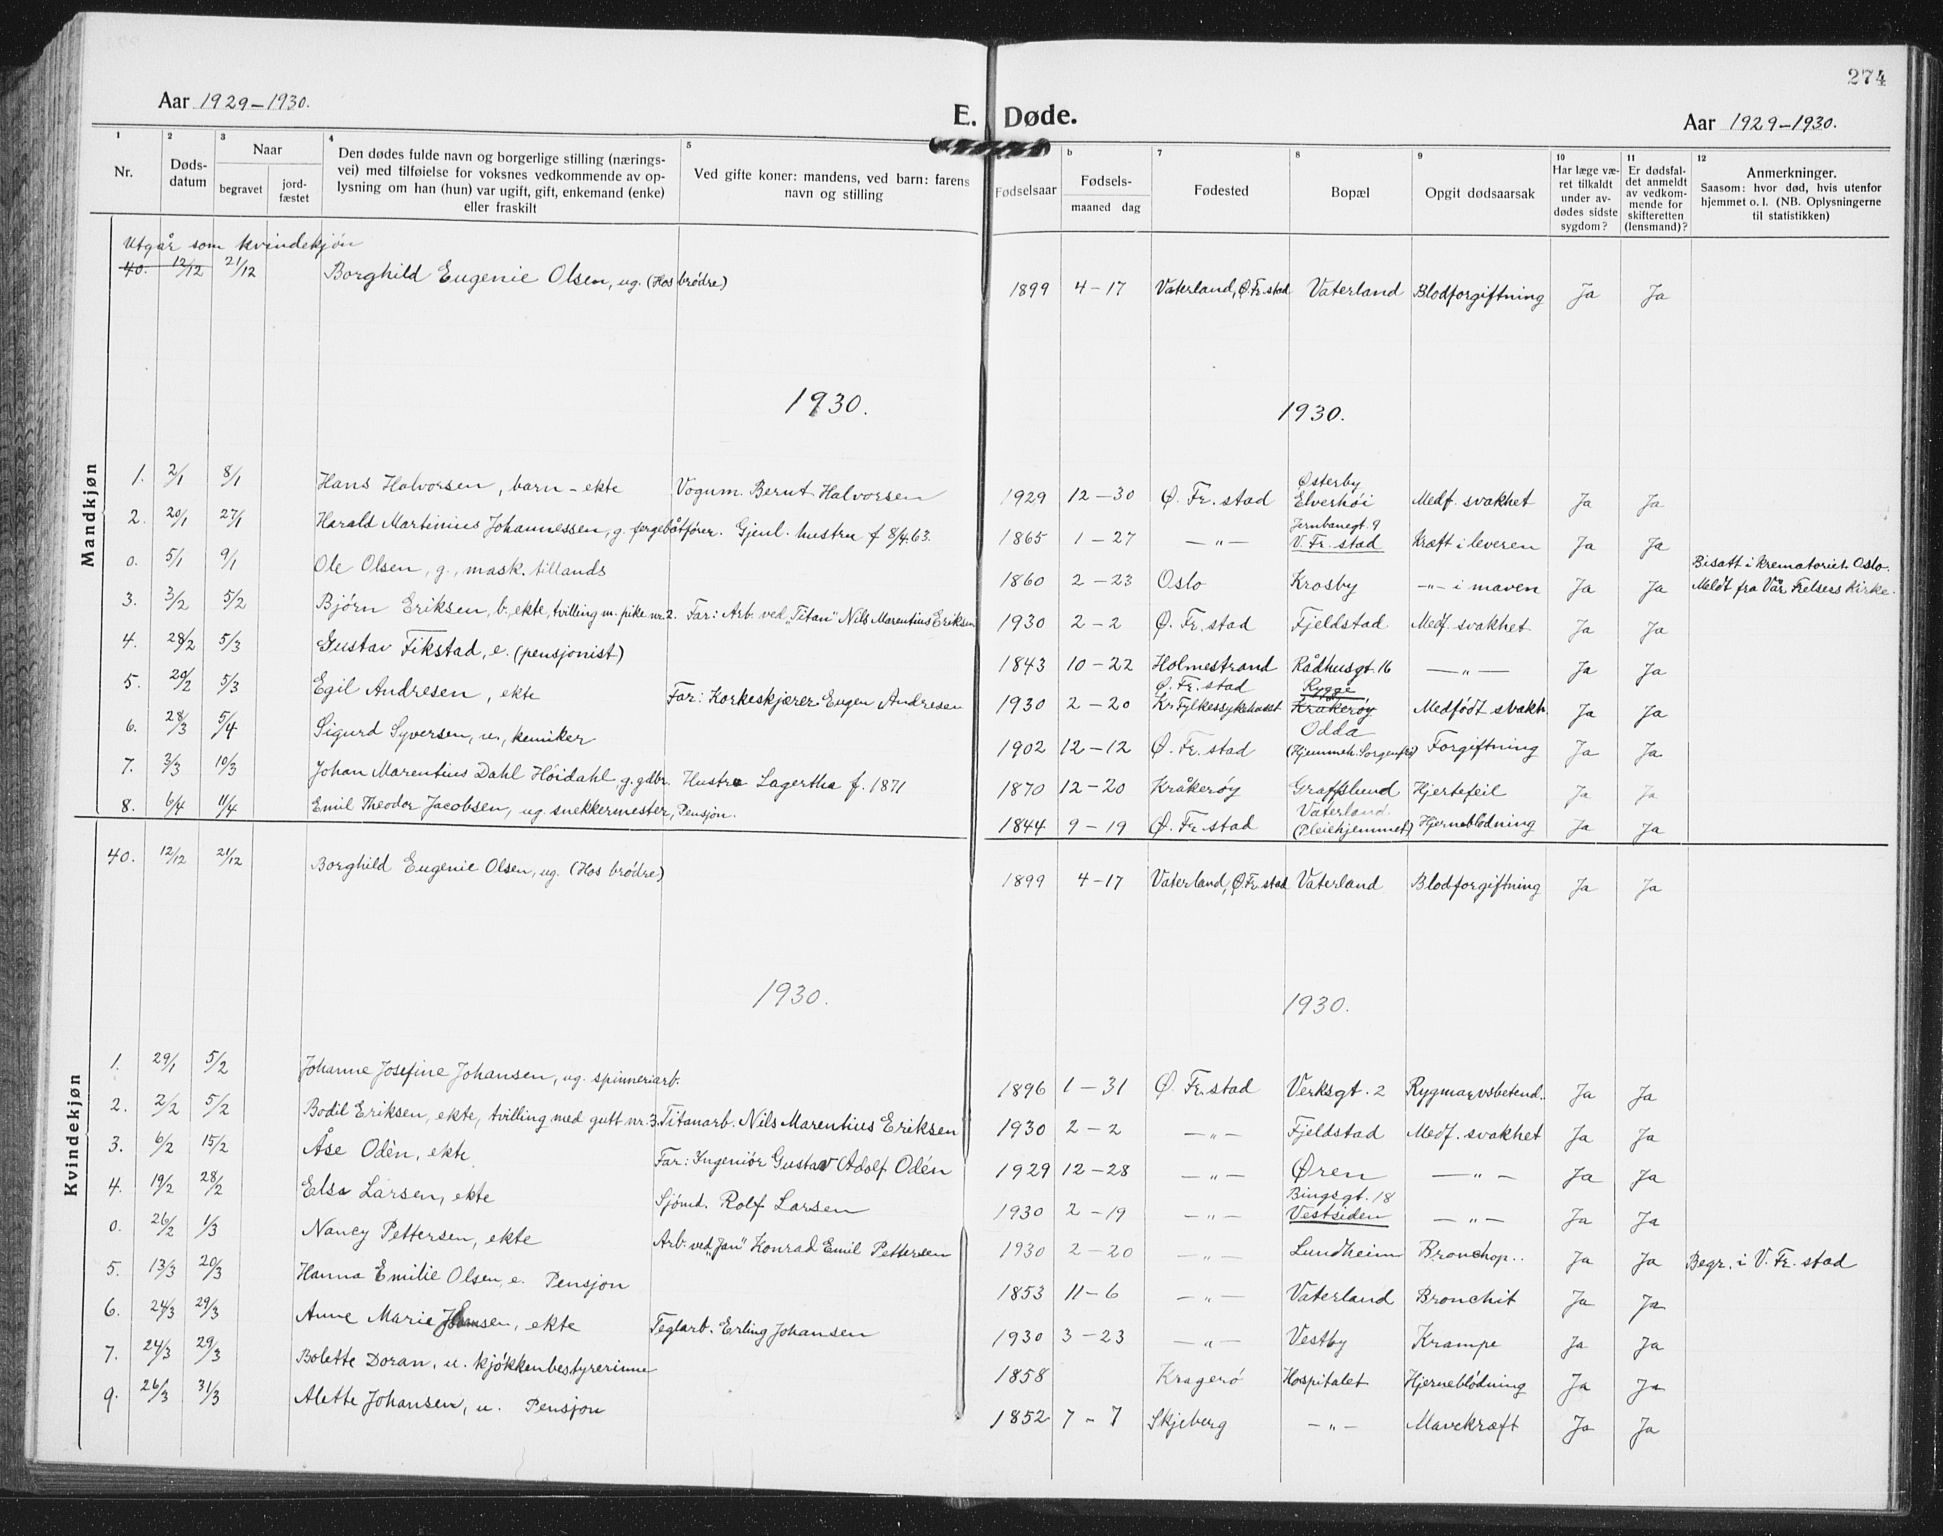 274
Aar 1929-1930.
E. Døde.
Aar 1929-1930.
1 2 3 4 5 6 7 8 9 10 11 12
Nr. | Døds-datum | Naar begravet | jord-fæstet | Den dødes fulde navn og borgerlige stilling (nærings-vei) med tilføielse for voksnes vedkommende av op-lysning om han (hun) var ugift, gift, enkemand (enke) eller fraskilt | Ved gifte koner: mandens, ved barn: farens navn og stilling | Fødselsaar | Fødsels-maaned dag | Fødested | Bopæl | Opgit dødsaarsak | Har læge væ-ret tilkaldt under av-dødes sidste sygdom? | Er dødsfal-det anmeldt av vedkom-mende for skifteretten (lensmand)? | Anmerkninger. Saasom: hvor død, hvis utenfor hjemmet o. l. (NB. Oplysningerne til statistikken)
Mandkjøn
Utgår som kvindekjøn
40. 12/12 21/12 Borghild Eugenie Olsen, ug. (Hos brødre) 1899 4-17 Vaterland, Ø. Fr.stad Vaterland Blodforgiftning Ja Ja
1930. 1930.
1. 2/1 8/1 Hans Halvorsen, barn - ekte Vognm. Bernt Halvorsen 1929 12-30 Ø. Fr.stad Østerby Elverhøi Medf. svakhet Ja Ja
2. 20/1 27/1 Harald Martinius Johannessen, g. fergebåtfører. Gjenl. hustru f 8/4.63. 1865 1-27 -"- Jernbanegt. 9 V. Fr.stad Kræft i leveren Ja Ja
0. 5/1 9/1 Ole Olsen, g., mask. tillands 1860 2-23 Oslo Krosby -"- i maven Ja Ja Bisatt i krematoriet Oslo. Meldt fra Vår Frelsers Kirke.
3. 3/2 5/2 Bjørn Eriksen, b., ekte, tvilling m. pike nr. 2. Far: Arb. ved "Titan" Nils Marentius Eriksen 1930 2-2 Ø. Fr.stad Fjeldstad Medf. svakhet Ja Ja
4. 28/2 5/3 Gustav Fikstad, e. (pensjonist) 1843 10-22 Holmestrand Rådhusgt. 16 -"- Ja Ja
5. 20/2 5/3 Egil Andresen, ekte Far: Korkeskjærer Eugen Andresen 1930 2-20 Ø. Fr. stad Kr. Fylkessykehuset Rygge Kråkerøy Medfødt svakh. Ja Ja
6. 28/3 5/4 Sigurd Syversen, u., kemiker 1902 12-12 Ø. Fr. stad Odda (Hjemmeh. Sorgenfri) Forgiftning Ja Ja
7. 3/3 10/3 Johan Marentius Dahl Höidahl, g. gdbr. Hustru Lagertha f. 1871 1870 12-20 Kråkerøy Graffslund Hjertefeil Ja Ja
8. 6/4 11/4 Emil Theodor Jacobsen, ug. snekkermester, Pensjon. 1844 9-19 Ø. Fr.stad Vaterland (Pleiehjemmet) Hjerneblødning Ja Ja
Kvindekjøn
40. 12/12 21/12 Borghild Eugenie Olsen, ug. (Hos brødre) 1899 4-17 Vaterland, Ø. Fr.stad Vaterland Blodforgiftning Ja Ja
1930. 1930.
1. 29/1 5/2 Johanne Josefine Johansen, ug. spinneriarb. 1896 1-31 Ø. Fr.stad Verksgt. 2 Rygmarvsbetend. Ja Ja
2. 2/2 5/2 Bodil Eriksen, ekte, tvilling med gutt nr. 3. Titanarb. Nils Marentius Eriksen 1930 2-2 -"- Fjeldstad Medf. svakhet Ja Ja
3. 6/2 15/2 Åse Odén, ekte Far: Ingeniör Gustav Adolf Odén 1929 12-28 -"- Øren -"- Ja Ja
4. 19/2 28/2 Elsa Larsen, ekte Sjömd. Rolf Larsen 1930 2-19 -"- Bingsgt. 18 Vestsiden -"- Ja Ja
0. 26/2 1/3 Nancy Pettersen, ekte Arb. ved "Jan" Konrad Emil Pettersen 1930 2-20 -"- Lundheim Bronchop.. Ja Ja Begr. i V. Fr. stad
5. 13/3 20/3 Hanna Emilie Olsen, e. Pensjon 1853 11-6 -"- Vaterland Bronchit Ja Ja
6. 24/3 29/3 Anne Marie Johansen, ekte Teglarb. Erling Johansen 1930 3-23 -"- Vestby Krampe Ja Ja
7. 24/3 29/3 Bolette Doran, u. kjøkkenbestyrerinne 1858 Kragerø Hospitalet Hjerneblödning Ja Ja
9. 26/3 31/3 Alette Johansen, u. Pensjon 1852 7-7 Skjeberg -"- Mavekræft Ja Ja